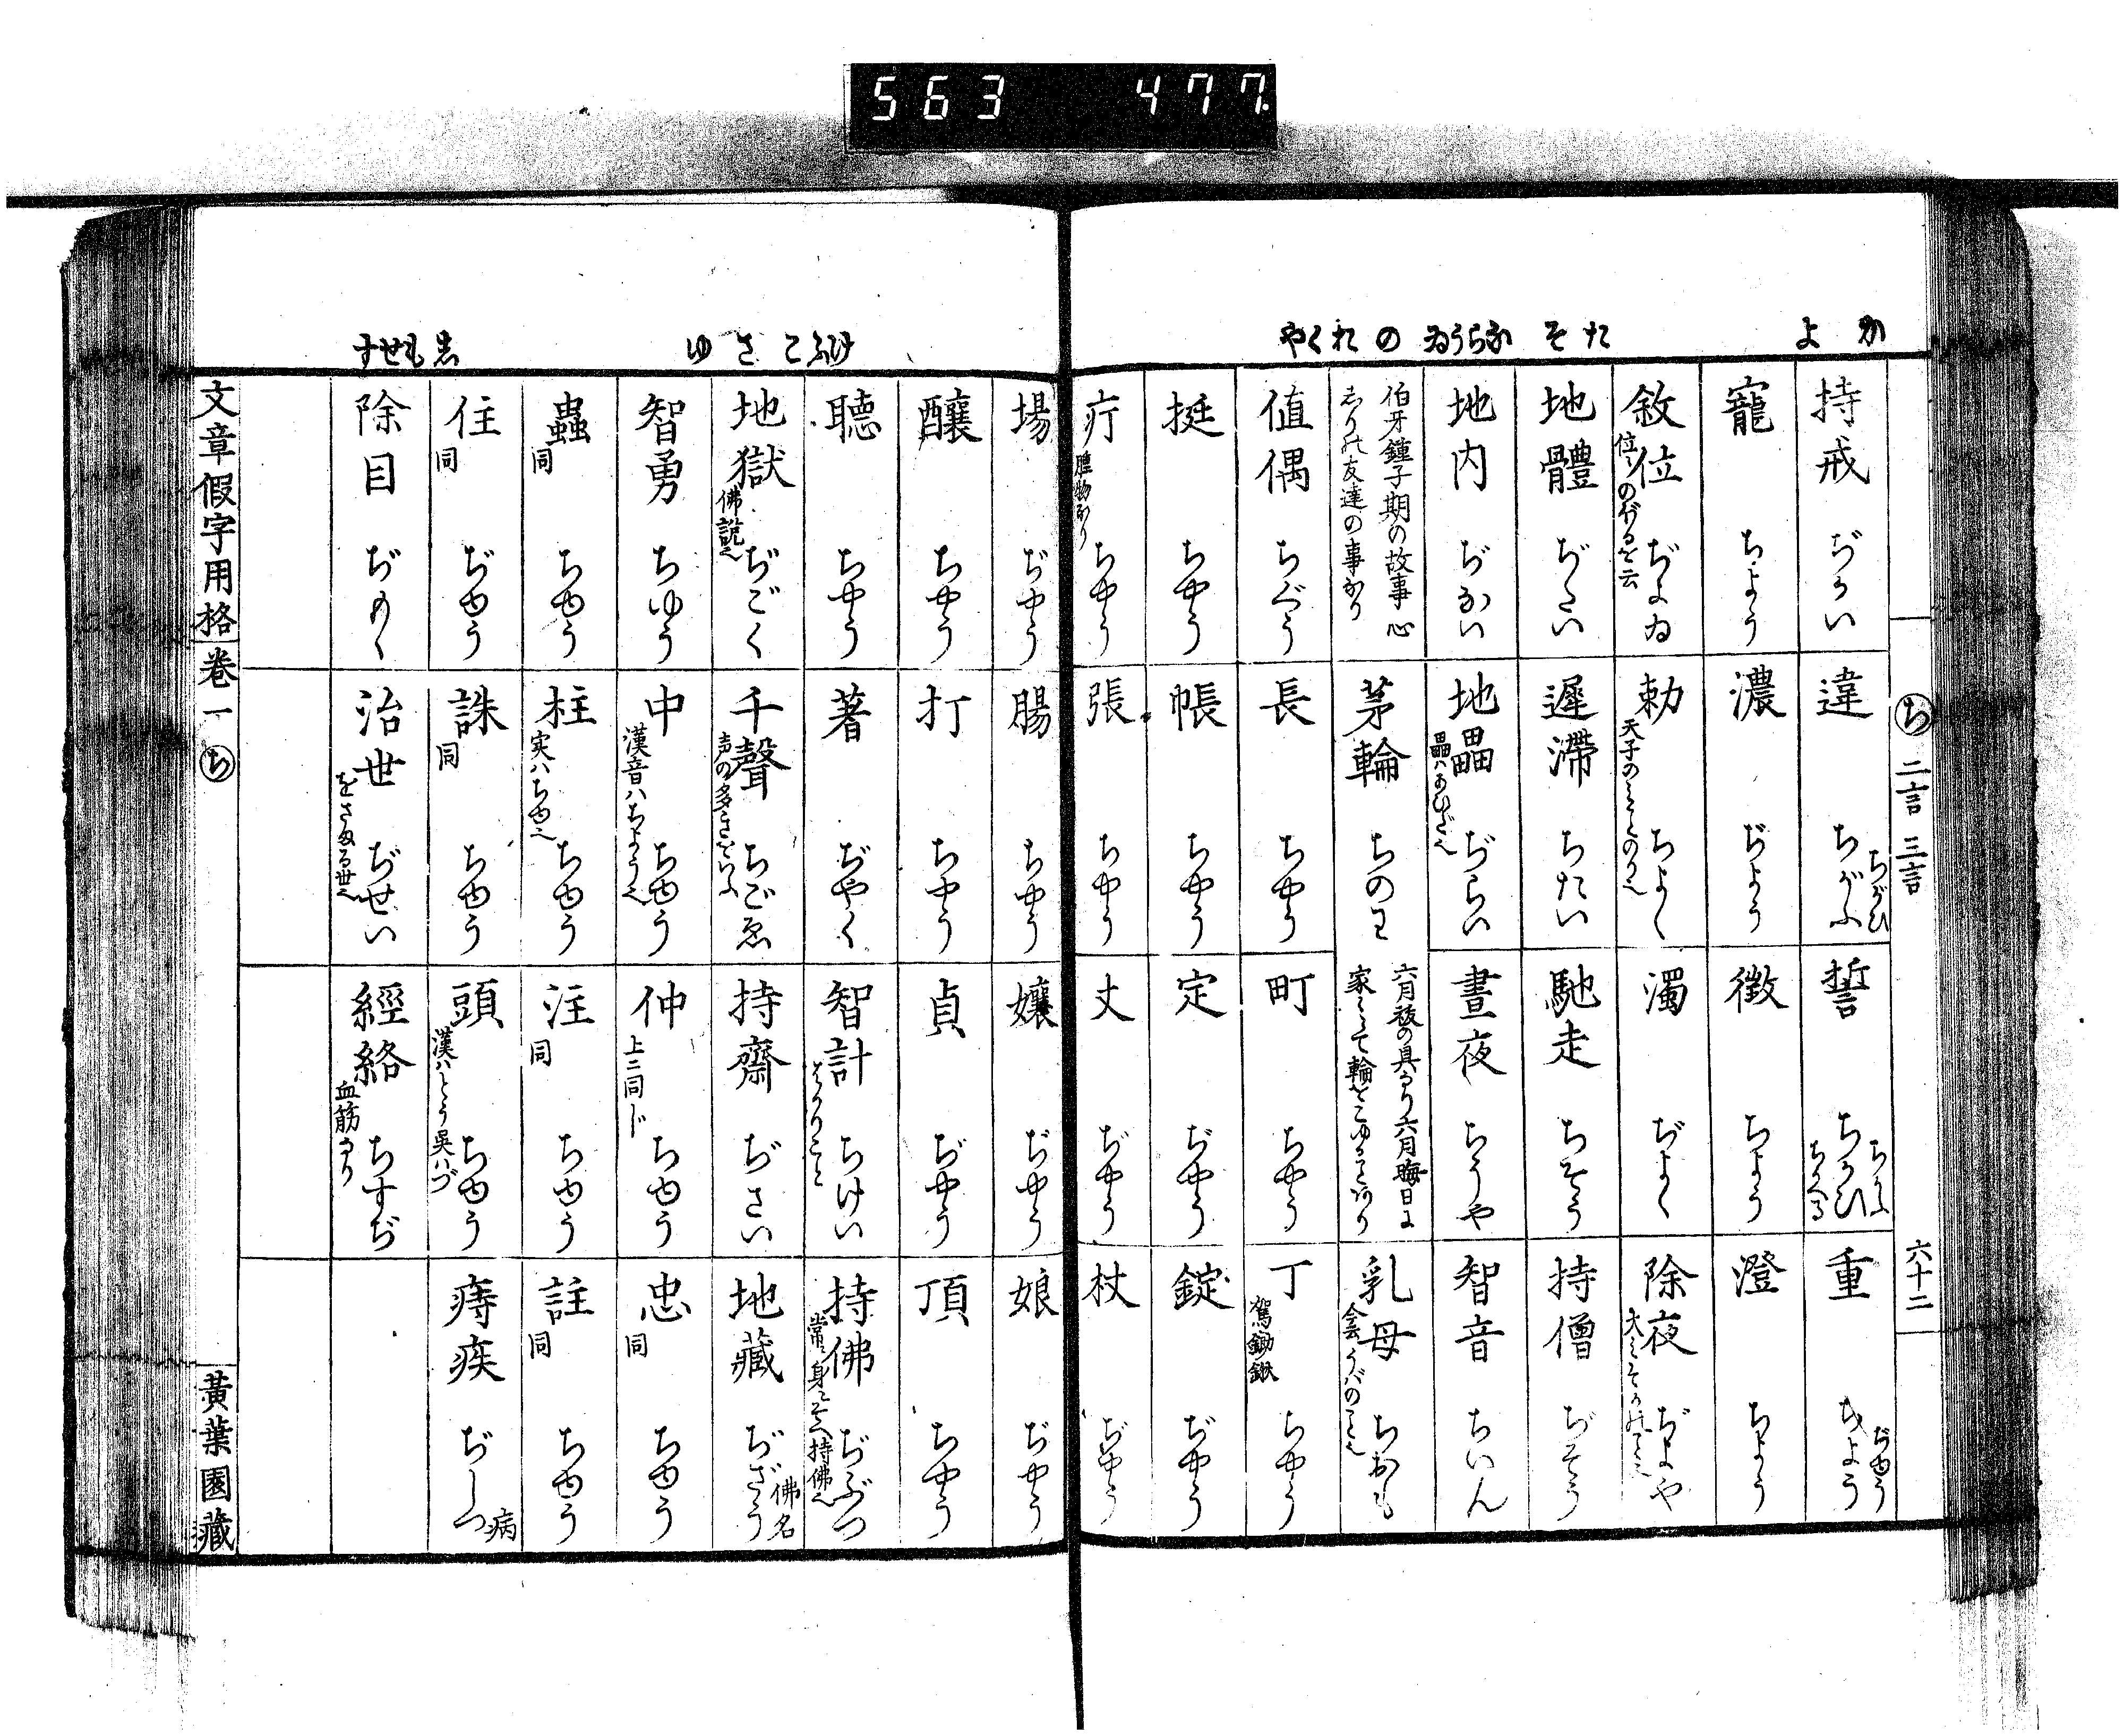 563 477
かよ
たそ
ならうゐ
の
おくや
けふこ
さ
ゆ
しもせす
ち 二言 三言
六十二
持戒 ぢかい
違 ちがふ ちがひ
誓 ちかひ ちかふ ちかへる
重 ちよう ぢゆう
寵 ちよう
濃 ぢよう
徴 ちよう
澄 ちよう
敘位 位のぼるを云 ぢよゐ
勅 天子のみことのり也 ちよく
濁 ぢよく
除夜 ぢよや
地體 ぢたい
遲滯 ちたい
馳走 ちそう
持僧 ぢそう
地内 ぢない
地畾 畾ハあひだ也 ぢらい
晝夜 ちうや
智音 ちいん
伯牙鍾子期の故事心
しりの友達の事なり
茅輪 ちのわ
六月祓の具なり六月晦日に
家々にて輪をこゆることあり
乳母 ちおも
値偶 ちぐう
長 ちやう
町 ちやう
丁 駕鋤鍬 ちやう
挺 ちやう
帳 ちやう
定 ぢやう
錠 ぢやう
疔 腫物なり ちやう
張 ちやう
丈 ぢやう
杖 ぢやう
場 ぢやう
腸 ちやう
孃 ぢやう
娘 ぢやう
釀 ちやう
打 ちやう
貞 ぢやう
頂 ちやう
聽 ちやう
著 ぢやく
智計 はかりこと ちけい
持佛 常身にそへ持佛也 ぢぶつ
地獄 佛説也 ぢごく
千聲 声の多きをいふ ちごゑ
持齋 ぢさい
地藏 佛名 ぢざう
智勇 ちゆう
中 漢音ハちよう也 ちゆう
仲 上ニ同じ ちゆう
忠 同 ちゆう
蟲 同 ちゆう
柱 実ハちゆ也 ちゆう
注 同 ちゆう
註 同 ちゆう
住 同 ぢゆう
誅 同 ちゆう
頭 漢ハとう呉ハづ ちゆう
痔疾 病 ぢしつ
除目 ぢもく
治世 をさまる世也 ぢせい
經絡 血筋なり ちすぢ
文章假字用格 卷一 ち
黄葉園藏